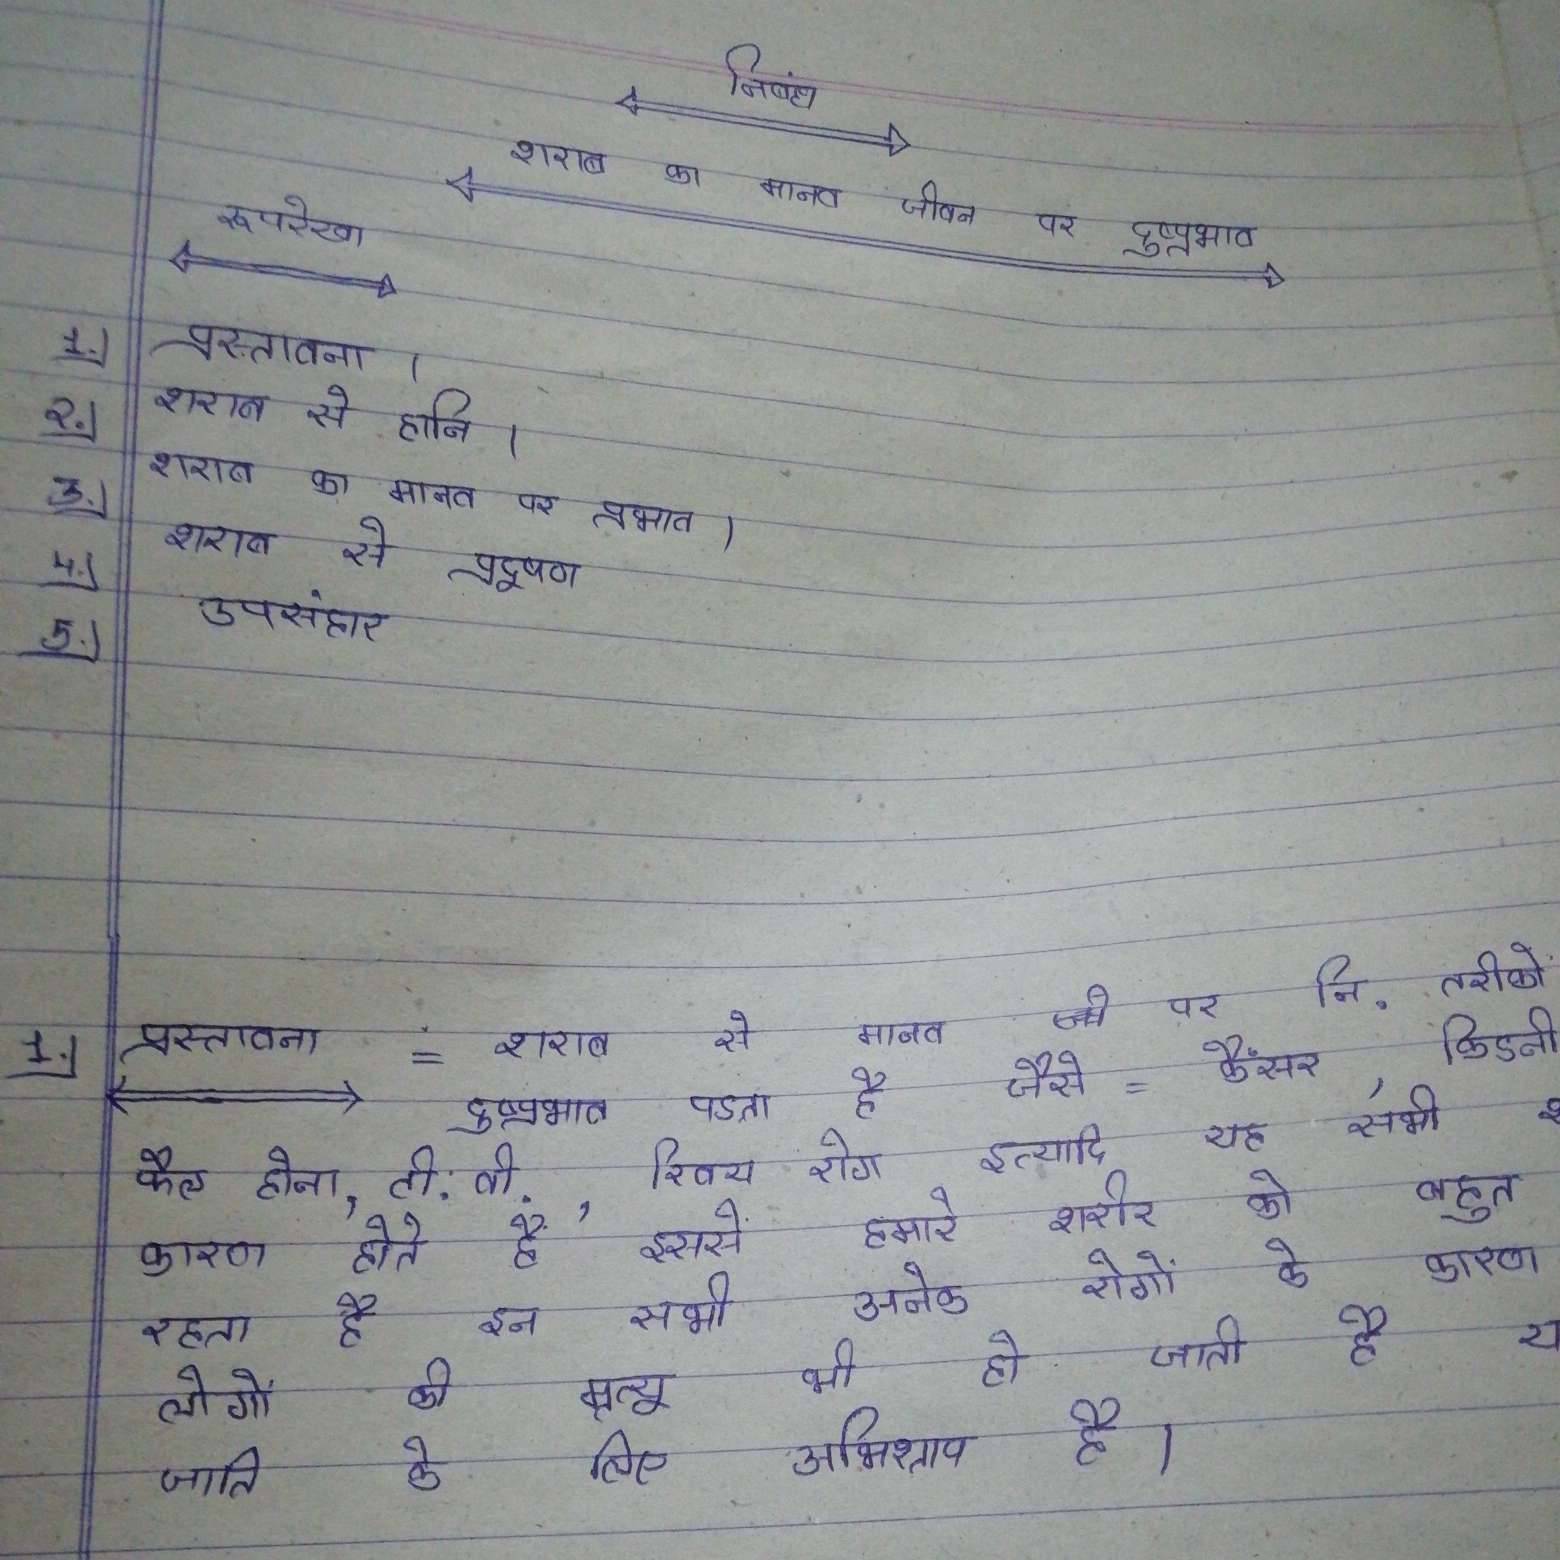 निबंध
शराब का मानव जीवन पर दुष्प्रभाव
रूपरेखा
1.) प्रस्तावना ।
2.) शराब से हानि ।
3.) शराब का मानव पर प्रभाव ।
4.) शराब से प्रदूषण
5.) उपसंहार
1.) प्रस्तावना = शराब से मानव पर नि. तरीकों
दुष्प्रभाव पडता है जैसे = कैंसर , किडनी
फैल होना, टी. वी. , रोग इत्यादि यह सभी
कारण होते हैं इससे हमारे शरीर को बहुत
रहता है इन सभी अनेक रोगों के कारण
लोगों की मृत्यू भी हो जाती है
जाति के लिए अभिश्ताप है ।